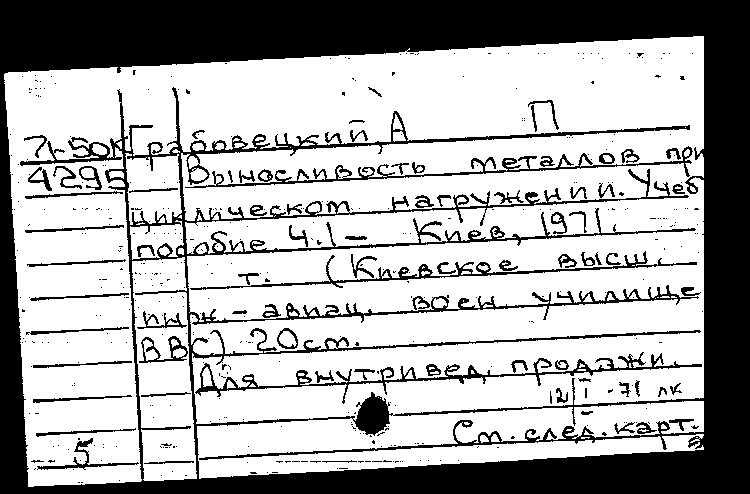 П
71-50К Грабовецкий, А
4295 Выносливость металлов при
циклическом нагружении. Учеб
пособие. Ч.1 – Киев, 1971.
т. (Киевское высш.
инж.- авиац. воен училище
ВВС). 20см.
Для внутривед. продажи.
12 I -71 лк
См. след. карт.
5